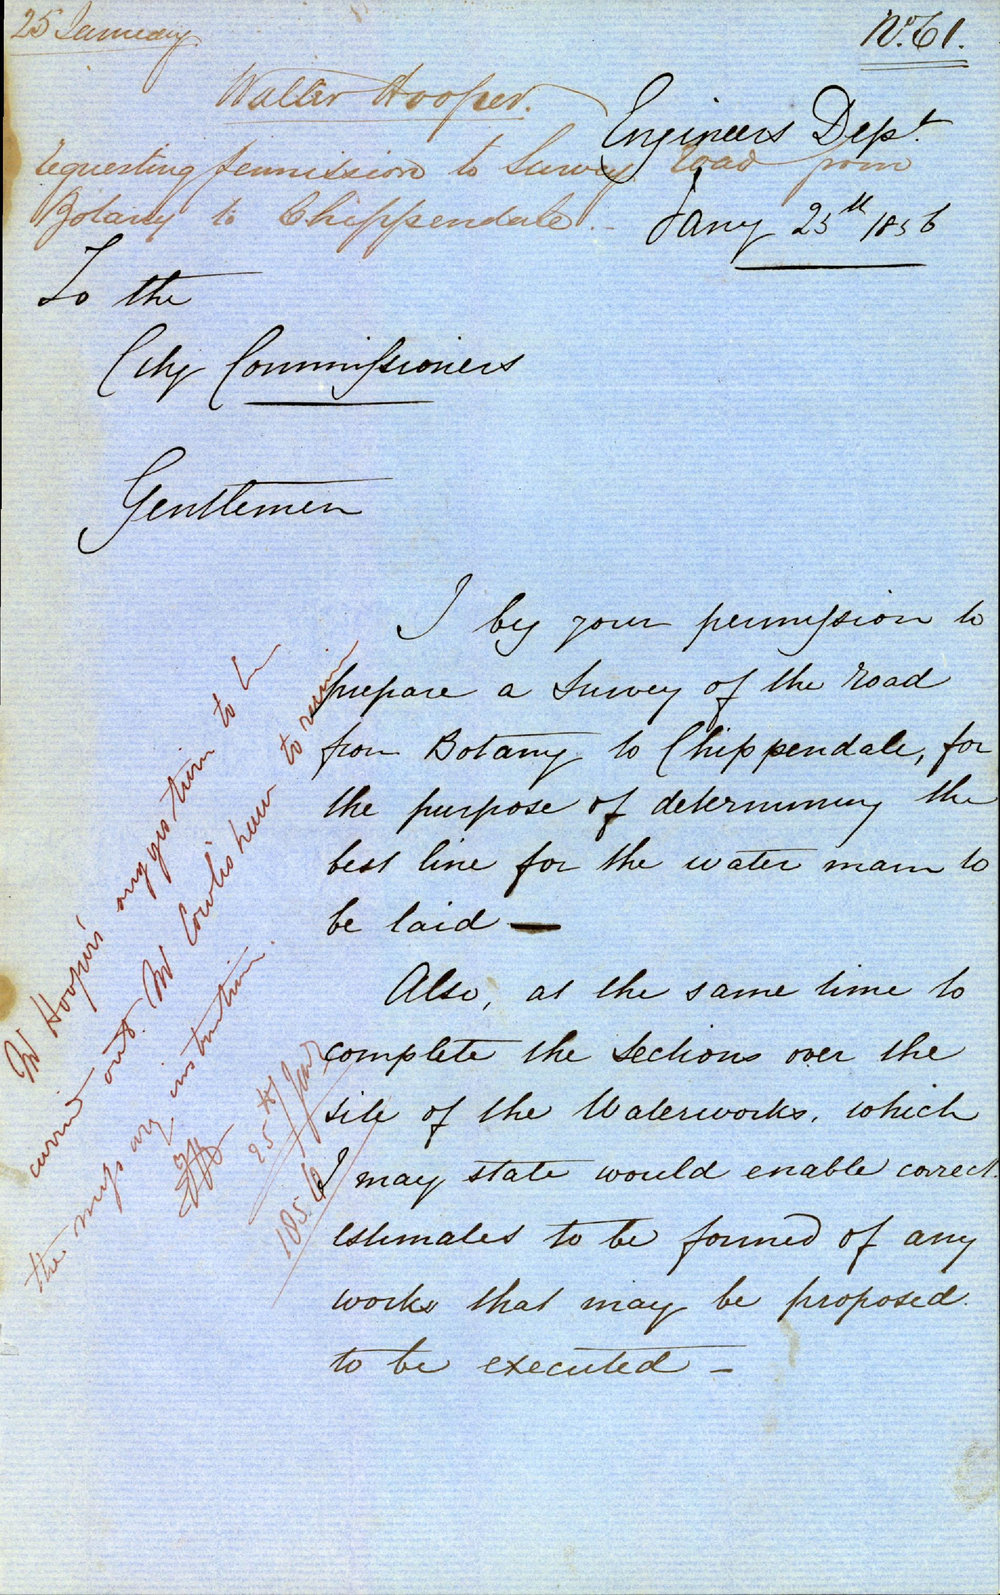 25 January
No. 61.
Walter Hooper.
requesting permission to Survey road from
Botany to Chippendale.-
Engineers Dept
Jany 25th 1856
To the
City Commissioners
Gentlemen
I beg your permission to
prepare a Survey of the road
from Botany to Chippendale, for
the purpose of determining the
best line for the water main to
be laid —
Also, at the same time to
complete the Sections over the
site of the Waterworks, which
I may state would enable correct
estimates to be formed of any
works that may be proposed
to be executed –
Mr Hooper's suggestion to be
carried out. Mr Cowlishaw to receive
the necessary instruction.
25th Jany
1856